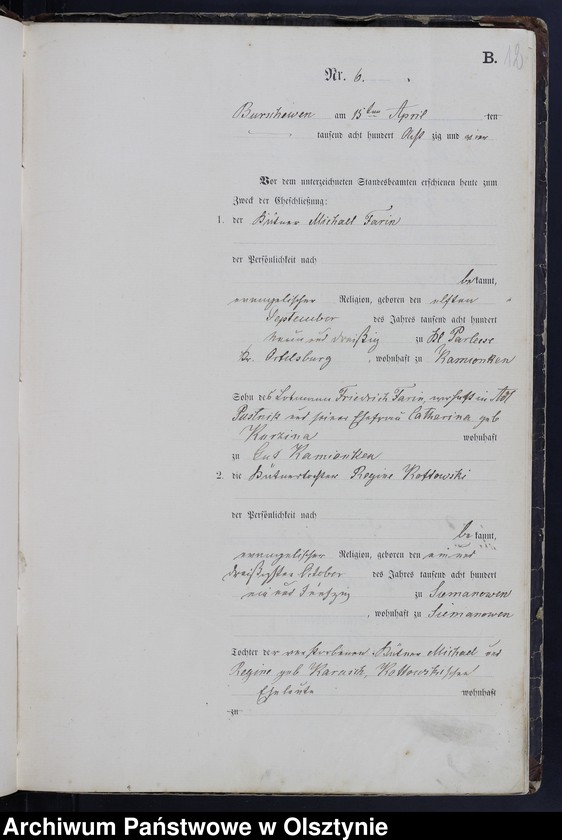 B. 12
Nr. 6.
Burschewen am 15ten April ten
tausend acht hundert Acht zig und vier
Vor dem unterzeichneten Standesbeamten erschienen heute zum
Zweck der Eheschließung:
1. der Kätner Michael Farin
der Persönlichkeit nach
be kannt,
evangelischer Religion, geboren den elften
September des Jahres tausend acht hundert
neun und dreißig zu Kl Parlese
Kr. Ortelsburg, wohnhaft zu Kamionken
Sohn des Losmann Friedrich Farin, in Adl
und seiner Ehefrau Catharina geb
Karzina wohnhaft
zu Gut Kamionken
2. die Kätnertochter Regine Kottowski
der Persönlichkeit nach
be kannt,
evangelischer Religion, geboren den ein und
dreißigsten October des Jahres tausend acht hundert
ein und fünfzig zu Siemanowen
, wohnhaft zu Siemanowen
Tochter der verstorbenen Kätner Michael und
Regine geb Karasch, Kottowskischen
Eheleute wohnhaft
zu
Archiwum Państwowe w Olsztynie